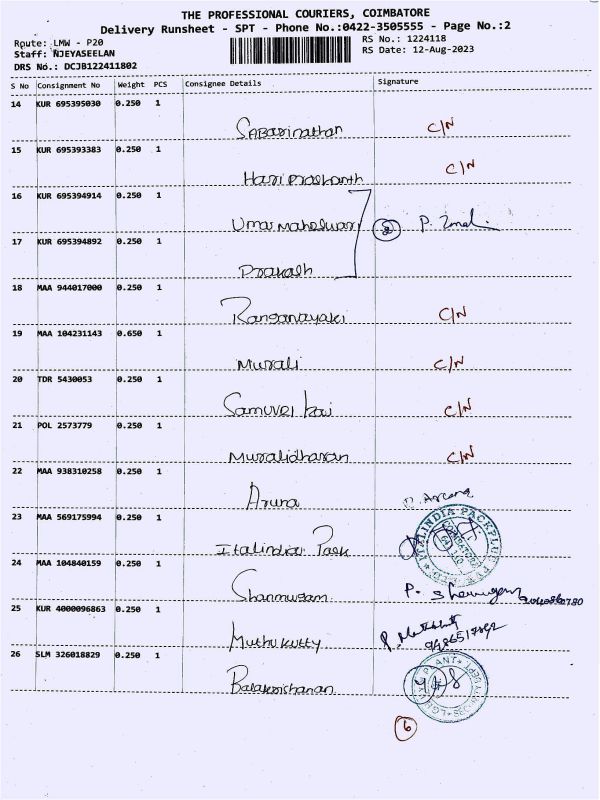 THE PROFESSIONAL COURIERS, COIMBATORE
Delivery Runsheet - SPT - Phone No.:0422-3505555 - Page No.:2
Route: LMW - P20
RS No.: 1224118
Staff: NJEYASEELAN
RS Date: 12-Aug-2023
DRS No.: DCJB122411802
S No Consignment No Weight PCS Consignee Details Signature
14 KUR 695395030 0.250 1
Sabarinathan C/N
15 KUR 695393383 0.250 1
Hari Prashanth C/N
16 KUR 695394914 0.250 1
Uma Maheswari 2 P.
17 KUR 695394892 0.250 1
Prakash
18 MAA 944017000 0.250 1
Ranganayaki C/N
19 MAA 104231143 0.650 1
Murali C/N
20 TDR 5430053 0.250 1
Samuvel C/N
21 POL 2573779 0.250 1
Muralidharan C/N
22 MAA 938310258 0.250 1
Aruna
23 MAA 569175994 0.250 1
Italindia Pack
24 MAA 104840159 0.250 1
Shanmugam P.
25 KUR 4000096863 0.250 1
Muthukutty
26 SLM 326018829 0.250 1
Balakrishanan
6